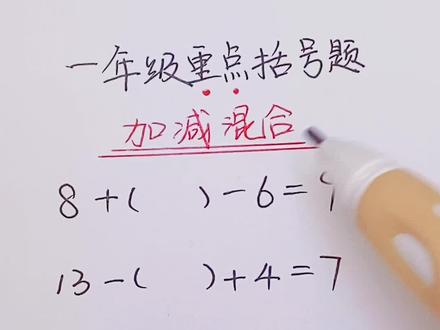 一年级重点括号题
加减混合
8+(  )-6=
13-(  )+4=7